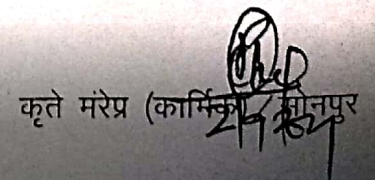 कृते मंरेप्र (कार्मिक) सोनपुर